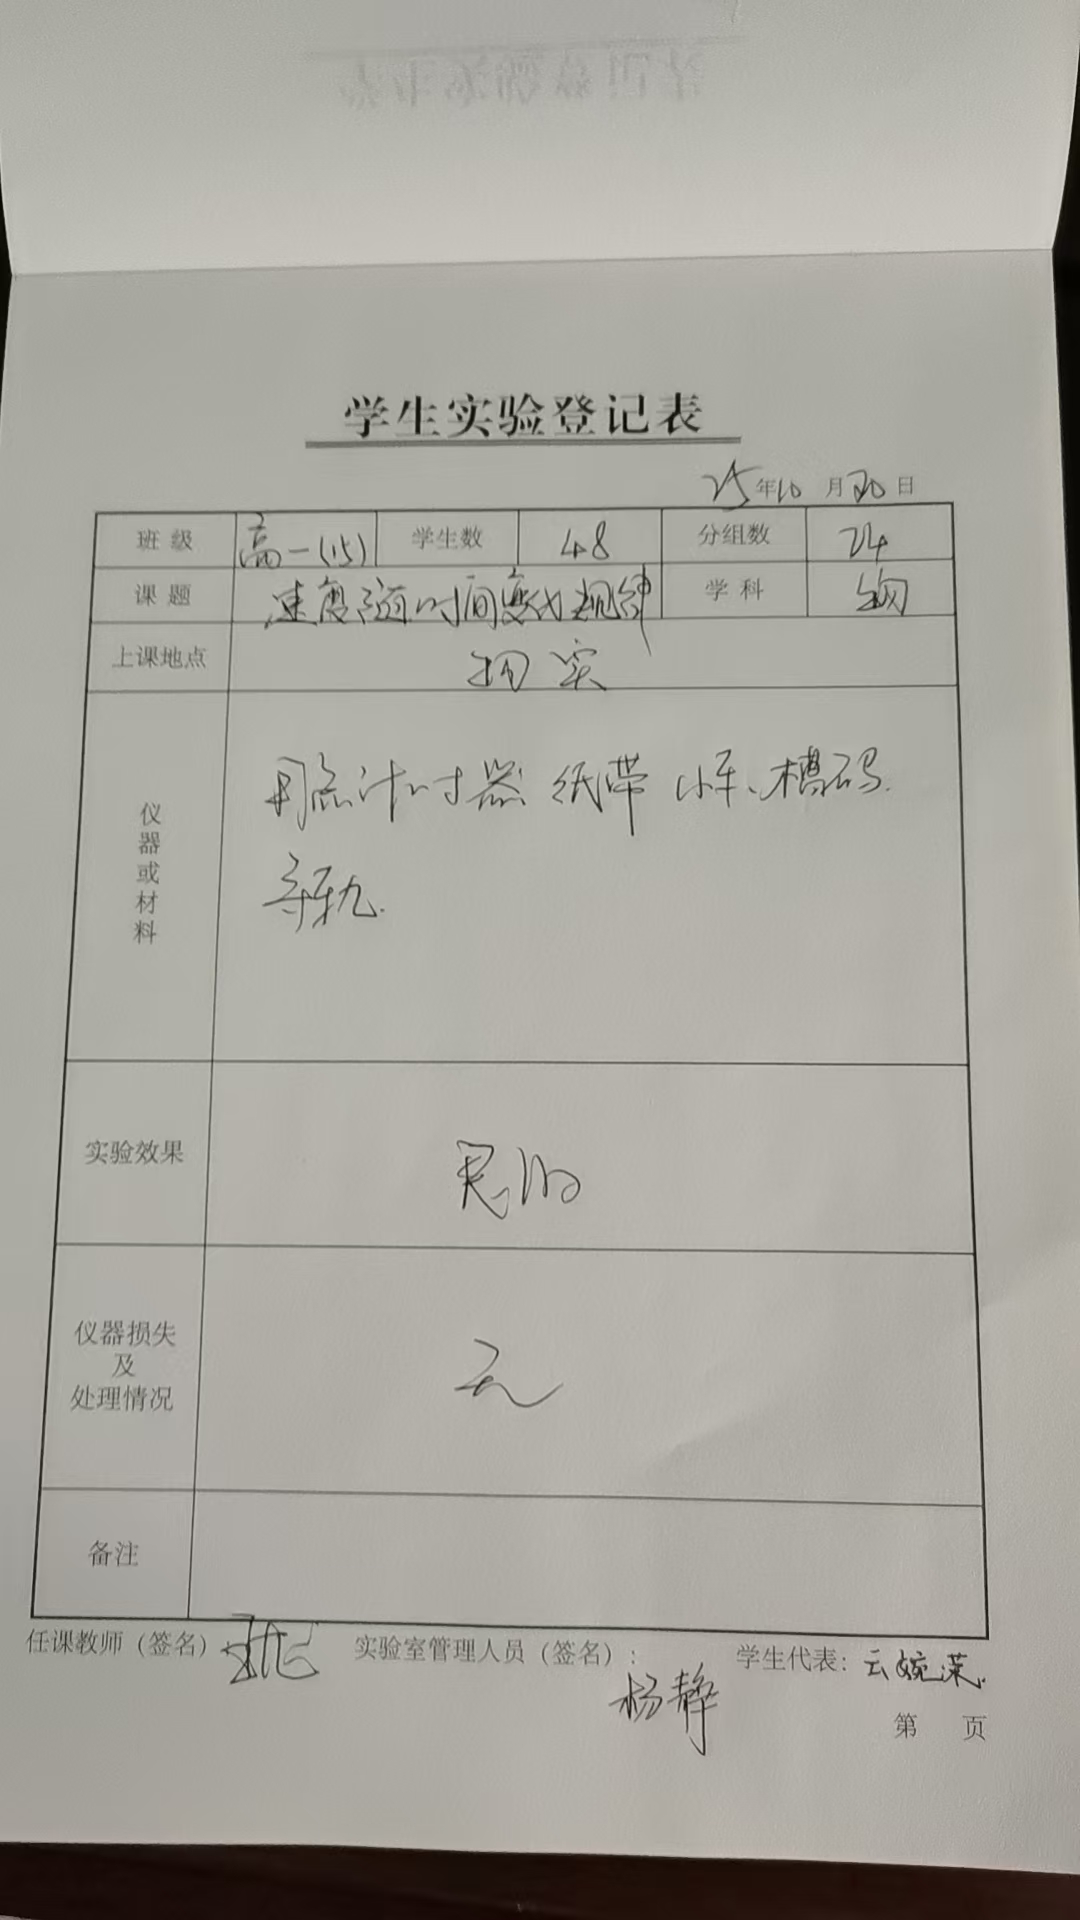 学生实验登记表
25年10月20日
班级 高一(15) 学生数 48 分组数 24
课题 速度随时间变化规律 学科 物
上课地点 物实
仪器或材料 打点计时器 纸带 小车、槽码.
导轨.
实验效果 良好
仪器损失
及
处理情况 无
备注
任课教师（签名） 实验室管理人员（签名）: 杨静 学生代表: 云婉荣
第 页